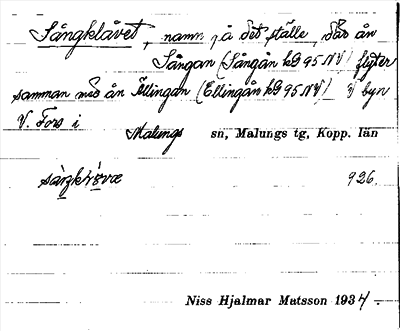 Sångklåvet, namn på det ställe, där ån
Sångan (Sångån kb 95 NV) flyter
samman med ån Ällingan (Ellingån kb 95 NV) i byn
V. Fors i
Malungs sn, Malungs tg, Kopp. län
926.
Niss Hjalmar Matsson 1934.